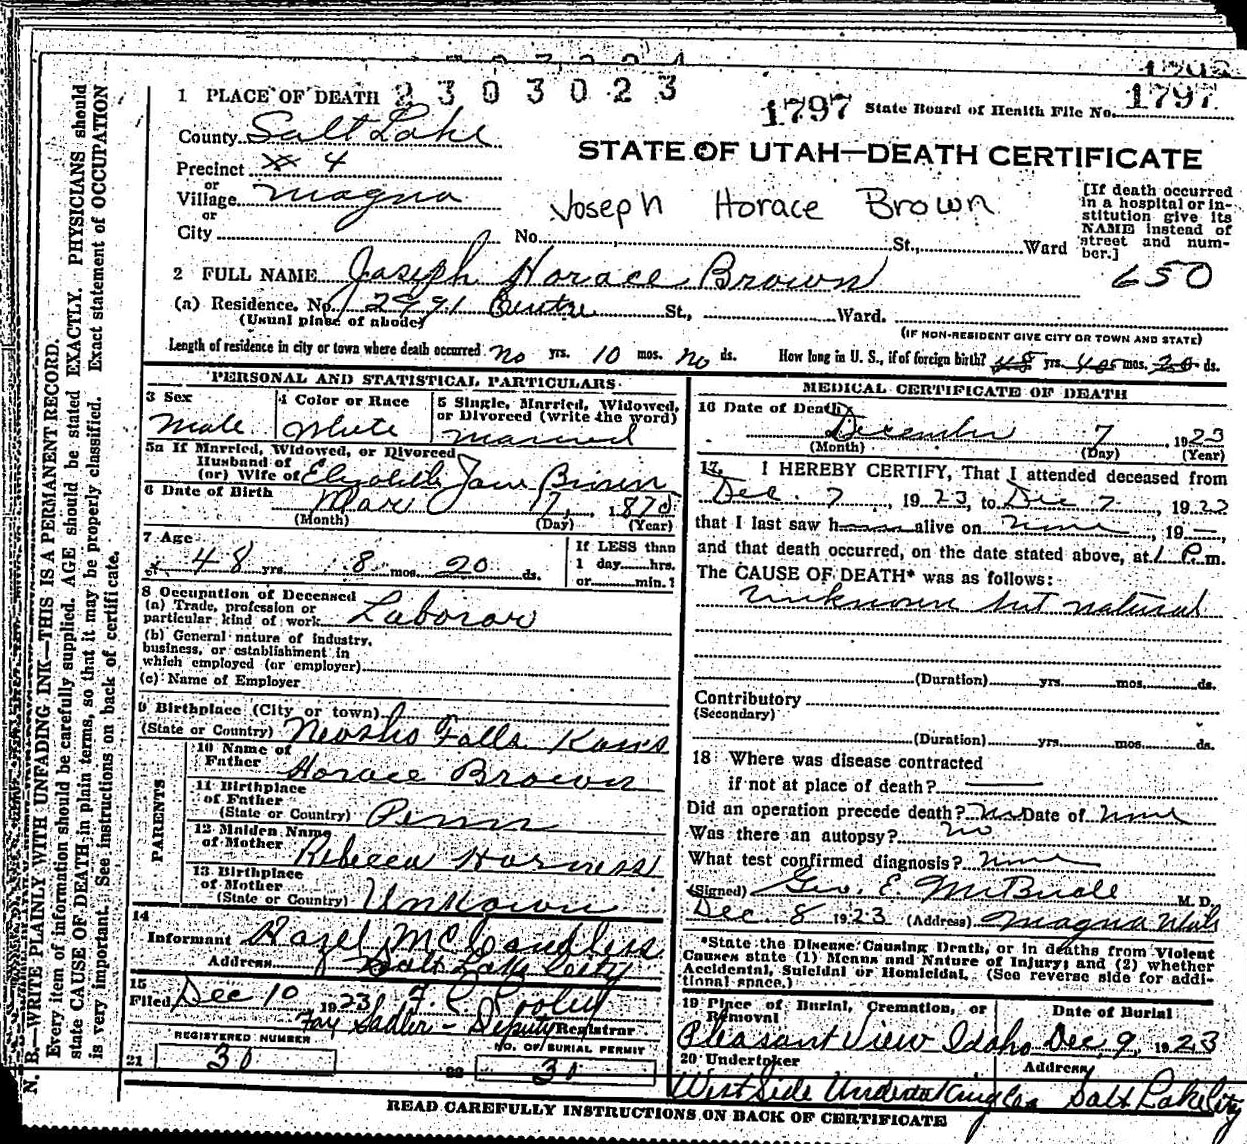 1 PLACE OF DEATH 2303023
1797 State Board of Health File No. 1797
County Salt Lake
STATE OF UTAH—DEATH CERTIFICATE
Precinct # 4
or
Village Magna
or
Joseph Horace Brown
[If death occurred in a hospital or in-
stitution give its
NAME instead of
street and num-
ber.]
City No. St., Ward
650
2 FULL NAME Joseph Horace Brown
(a) Residence. No. 2991 Centre St., Ward.
(Usual place of abode) (IF NON-RESIDENT GIVE CITY OR TOWN AND STATE)
Length of residence in city or town where death occurred No yrs. 10 mos. No ds. How long in U. S., if of foreign birth? yrs. mos. ds.
PERSONAL AND STATISTICAL PARTICULARS
3 Sex Male
4 Color or Race White
5 Single, Married, Widowed,
or Divorced (write the word)
Married
5a If Married, Widowed, or Divorced
Husband of
(or) Wife of Elizabeth Jane Brown
6 Date of Birth Mar 17, 187
(Month) (Day) (Year)
7 Age
48 yrs. 8 mos. 20 ds.
If LESS than
1 day hrs.
or min.?
8 Occupation of Deceased
(a) Trade, profession or
particular kind of work Laborar
(b) General nature of industry,
business, or establishment in
which employed (or employer)
(c) Name of Employer
9 Birthplace (City or town)
(State or Country) Neosho Falls Kans
PARENTS
10 Name of
Father Horace Brown
11 Birthplace
of Father
(State or Country) Penn
12 Maiden Name
of Mother Rebecca Harness
13 Birthplace
of Mother
(State or Country) Unknown
14
Informant Hazel McCandless
Address Salt Lake City
15
Filed Dec 10 1923 F. C.
Fay Sadler - Deputy Registrar
REGISTERED NUMBER NO. OF BURIAL PERMIT
21 30 22 30
MEDICAL CERTIFICATE OF DEATH
16 Date of Death
December 7, 1923
(Month) (Day) (Year)
17. I HEREBY CERTIFY, That I attended deceased from
Dec. 7 1923, to Dec 7, 1923
that I last saw h alive on none, 19—,
and that death occurred, on the date stated above, at 1 P. m.
The CAUSE OF DEATH* was as follows:
unknown but natural
(Duration) yrs. mos. ds.
Contributory
(Secondary)
(Duration) yrs. mos. ds.
18 Where was disease contracted
if not at place of death?
Did an operation precede death? No Date of none
Was there an autopsy? no
What test confirmed diagnosis? none
(Signed) Geo. E. M. D.
Dec. 8 1923 (Address) Magna Utah
*State the Disease Causing Death, or in deaths from Violent
Causes state (1) Means and Nature of Injury; and (2) whether
Accidental, Suicidal or Homicidal. (See reverse side for addi-
tional space.)
19 Place of Burial, Cremation, or
Removal
Pleasant View Idaho
Date of Burial
Dec, 9, 1923
20 Undertaker
West Side Undertaking Co
Address
Salt Lake City
READ CAREFULLY INSTRUCTIONS ON BACK OF CERTIFICATE
N. B.—WRITE PLAINLY WITH UNFADING INK—THIS IS A PERMANENT RECORD.
Every item of information should be carefully supplied. AGE should be stated EXACTLY. PHYSICIANS should
state CAUSE OF DEATH in plain terms, so that it may be properly classified. Exact statement of OCCUPATION
is very important. See instructions on back of certificate.